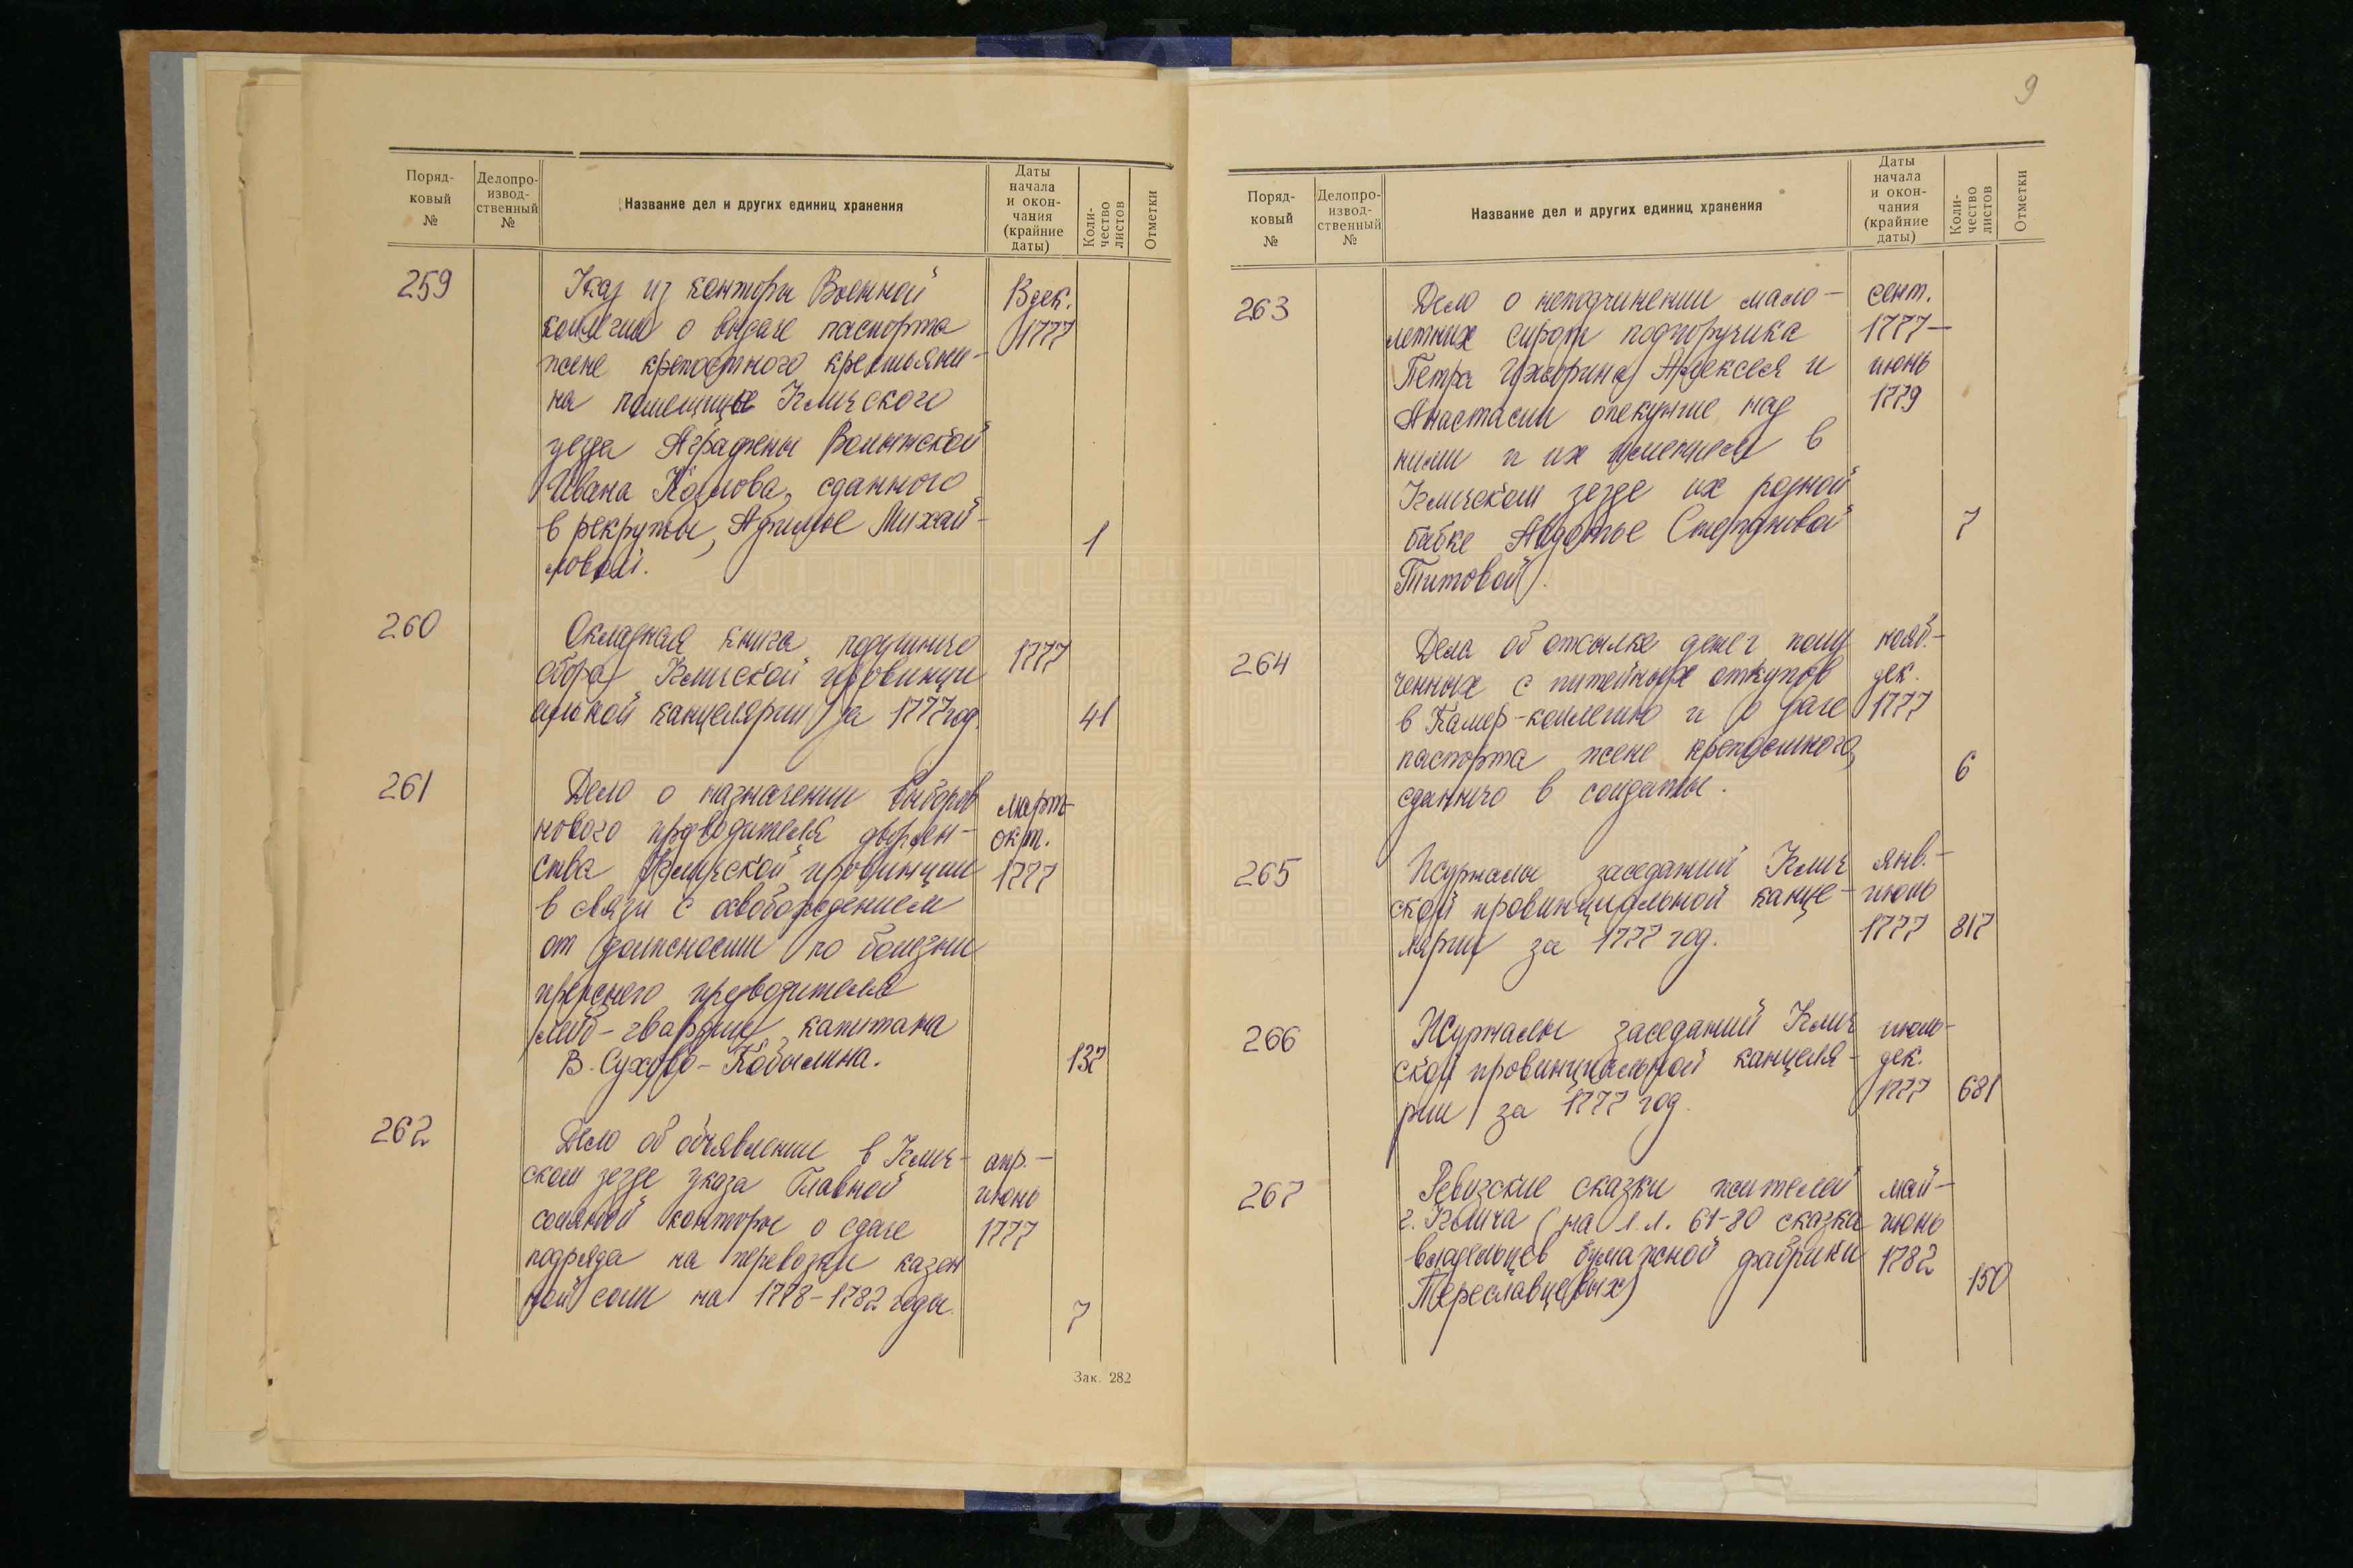 Поряд-
ковый
№
Делопро-
извод-
ственный
№
Название дел и других единиц хранения
Даты
начала
и окон-
чания
(крайние
даты)
Коли-
чество
листов
Отметки
259
Указ из конторы Военной
коллегии о выдаче паспорта
жене крепостного крестьяни-
на помещицы Углического
уезда Аграфены Волынской
Ивана Козлова, сданного
в рекруты, Афимье Михай-
ловой.
13 дек.
1777
1
260
Окладная книга подушного
сбора Углической провинци
альной канцелярии за 1777 год.
1777
41
261
Дело о назначении выборов
нового предводителя дворян-
ства Углической провинции
в связи с освобождением
от должности по болезни
прежнего предводителя
лейб-гвардии капитана
В. Сухово-Кобылина.
март-
окт.
1777
137
262
Дело об объявлении в Углич-
ском уезде указа Главной
соляной конторы о сдаче
подряда на перевозки казен
ной соли на 1778-1782 годы.
апр.-
июнь
1777
7
Зак. 282
9
Поряд-
ковый
№
Делопро-
извод-
ственный
№
Название дел и других единиц хранения
Даты
начала
и окон-
чания
(крайние
даты)
Коли-
чество
листов
Отметки
263
Дело о неподчинении мало-
летних сирот подпоручика
Петра Алексея и
Анастасии опекунше над
ними и их имением в
Угличском уезде их родной
бабке Авдотье Степановой
Титовой.
сент.
1777-
июнь
1779
7
264
Дела об отсылке денег, полу
ченных с питейных откупов
в Камер-коллегию и о даче
паспорта жене крепостного,
сданного в солдаты.
нояб.-
дек.
1777
6
265
Журналы заседаний Углич
ской провинциальной канце-
лярии за 1777 год.
янв.-
июнь
1777
817
266
Журналы заседаний Углич
ской провинциальной канцеля-
рии за 1777 год.
июль-
дек.
1777
681
267
Ревизские сказки жителей
г. Углича (на л.л. 61-80 сказка
владельцев бумажной фабрики
Переславцевых)
май-
июнь
1782
150